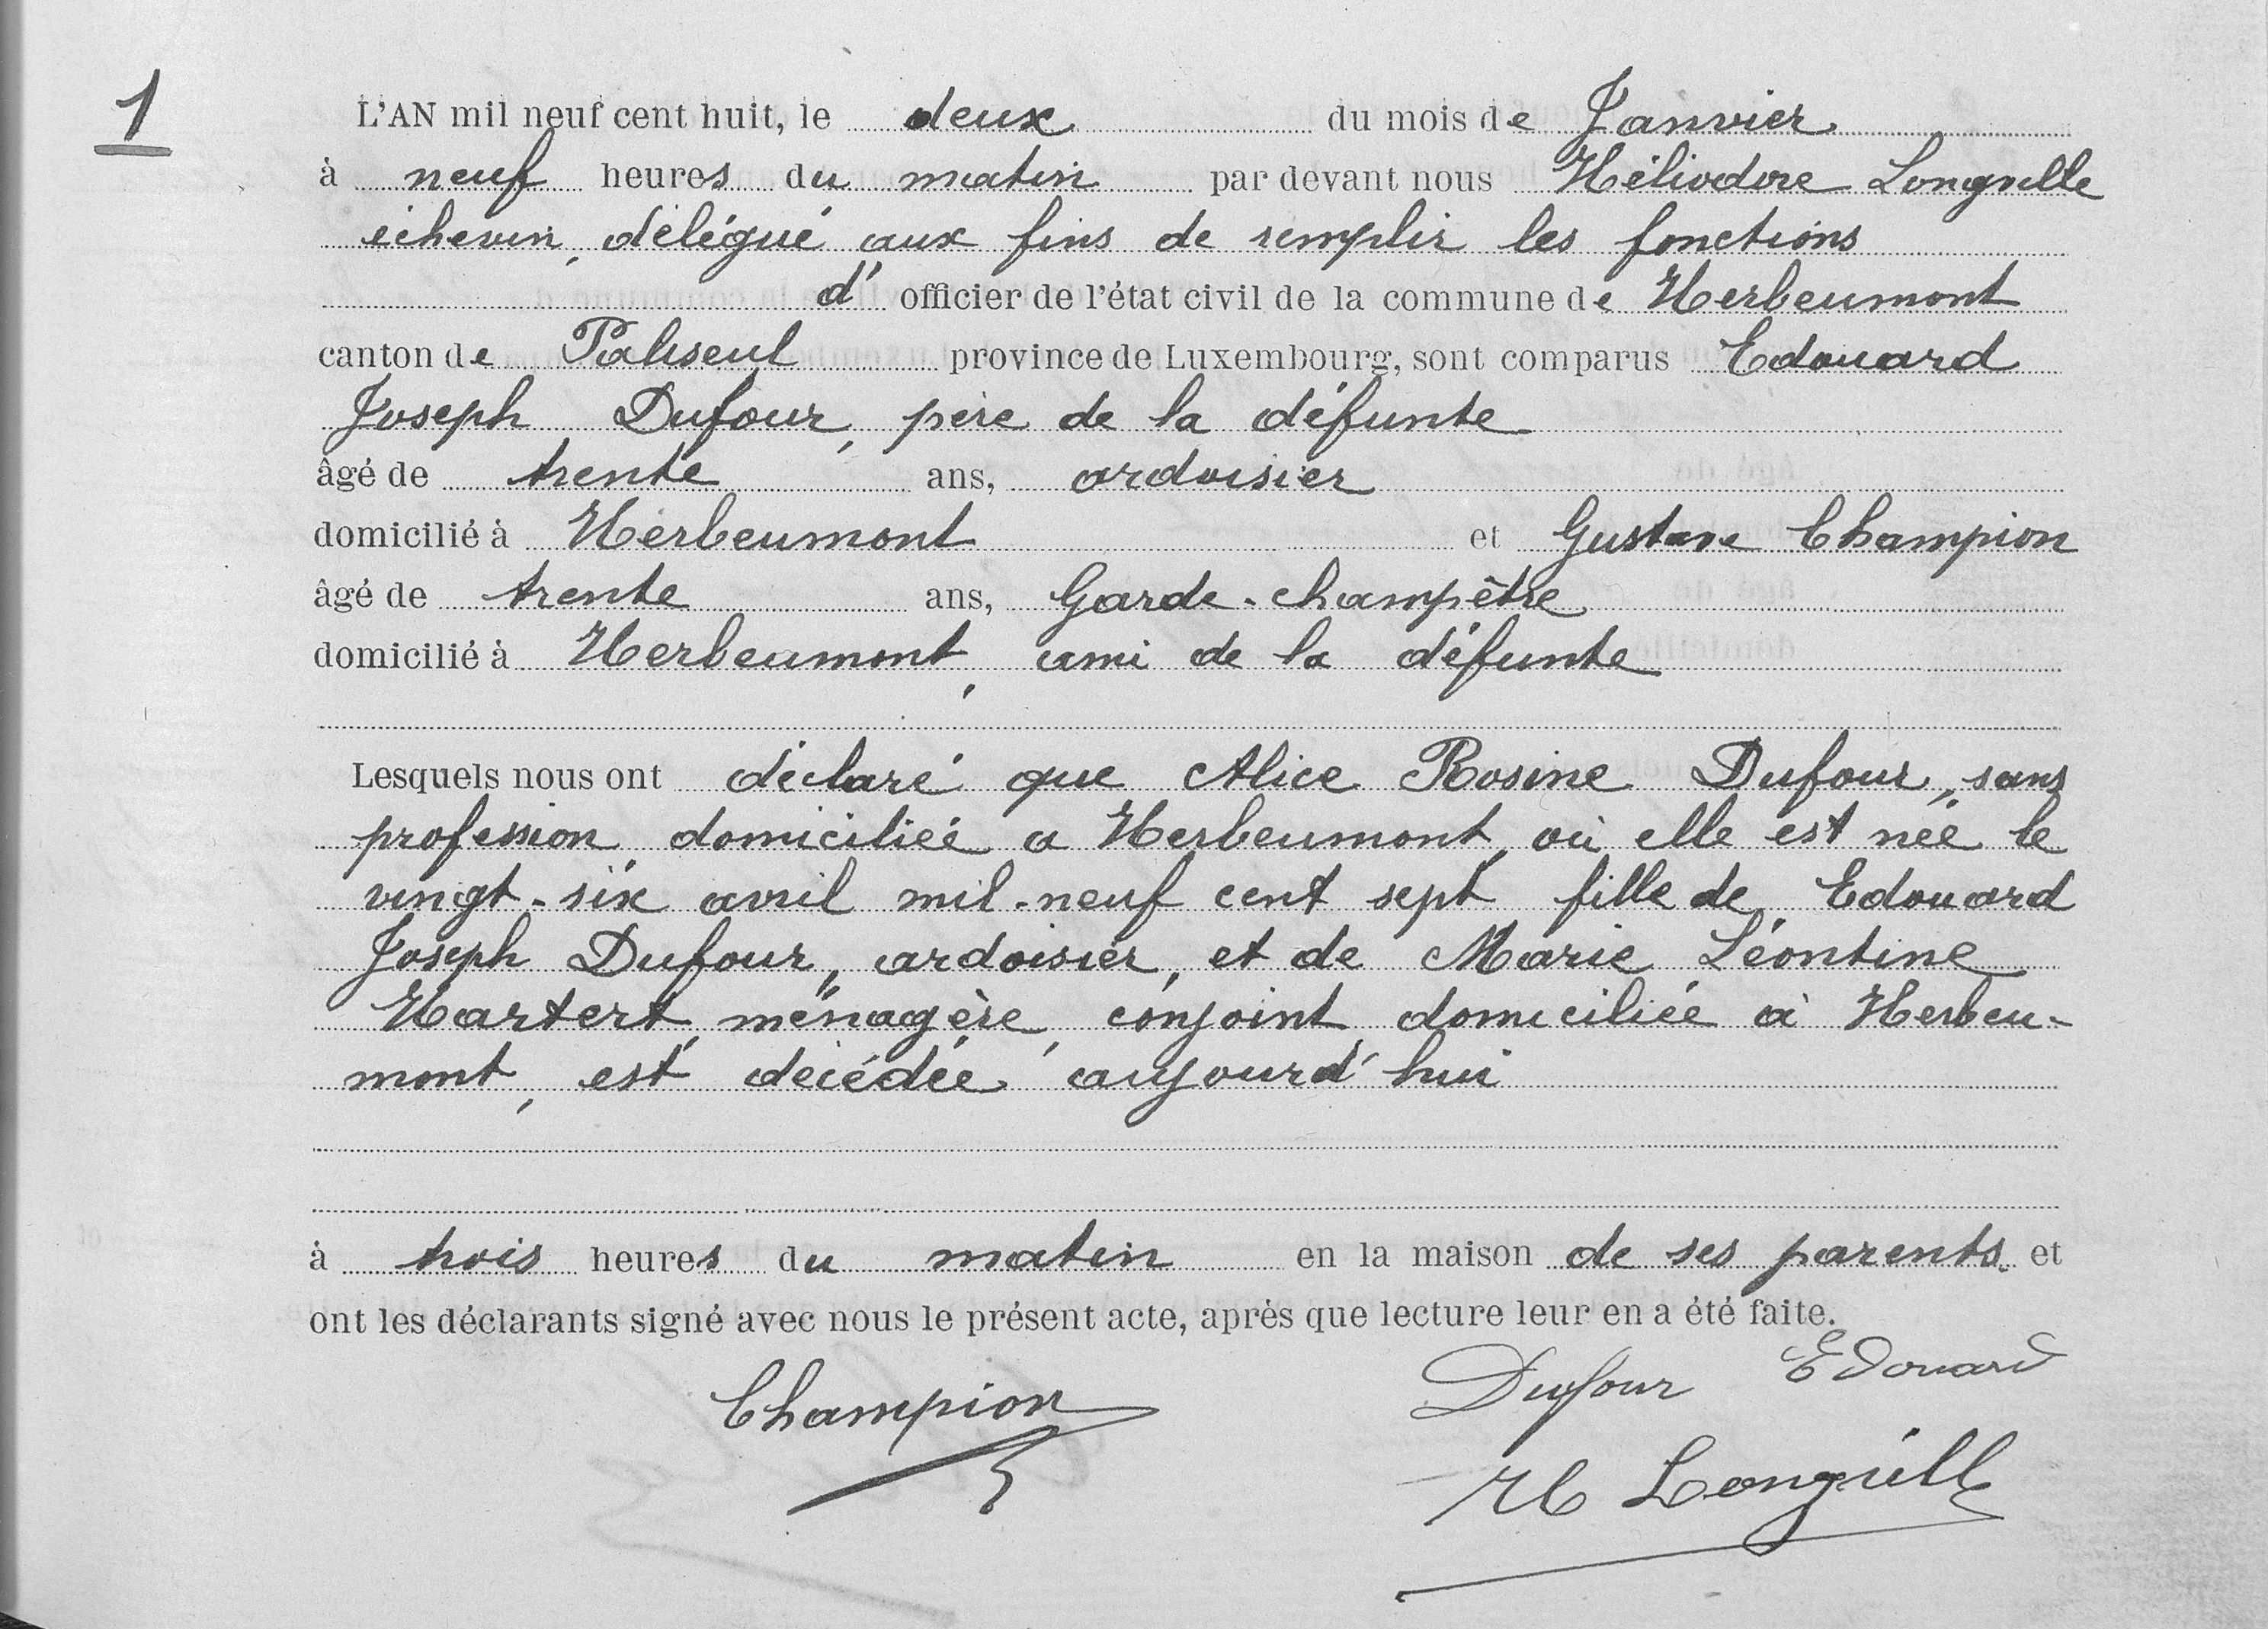 1
L'AN mil neuf cent huit, le deux du mois de Janvier
à neuf heures du matin par devant nous Héliodore Longville
échevin, délégué aux fins de remplir les fonctions
d' officier de l'état civil de la commune de Herbeumont
canton de Paliseul province de Luxembourg, sont comparus Edouard
Joseph Dufour, père de la défunte
âgé de trente ans, ardoisier
domicilié à Herbeumont et Gustave Champion
âgé de trente ans, Garde-champêtre
domicilié à Herbeumont, ami de la défunte
Lesquels nous ont déclaré que Alice Rosine Dufour, sans
profession, domiciliée a Herbeumont, où elle est née le
vingt-six avril mil-neuf cent sept, fille de Edouard
Joseph Dufour, ardoisier, et de Marie Léontine
Hartert, ménagère, conjoint, domiciliée à Herbeu-
mont, est décédée aujourd'hui
à trois heures du matin en la maison de ses parents. et
ont les déclarants signé avec nous le présent acte, après que lecture leur en a été faite.
Champion Dufour Edouard
H Longvill